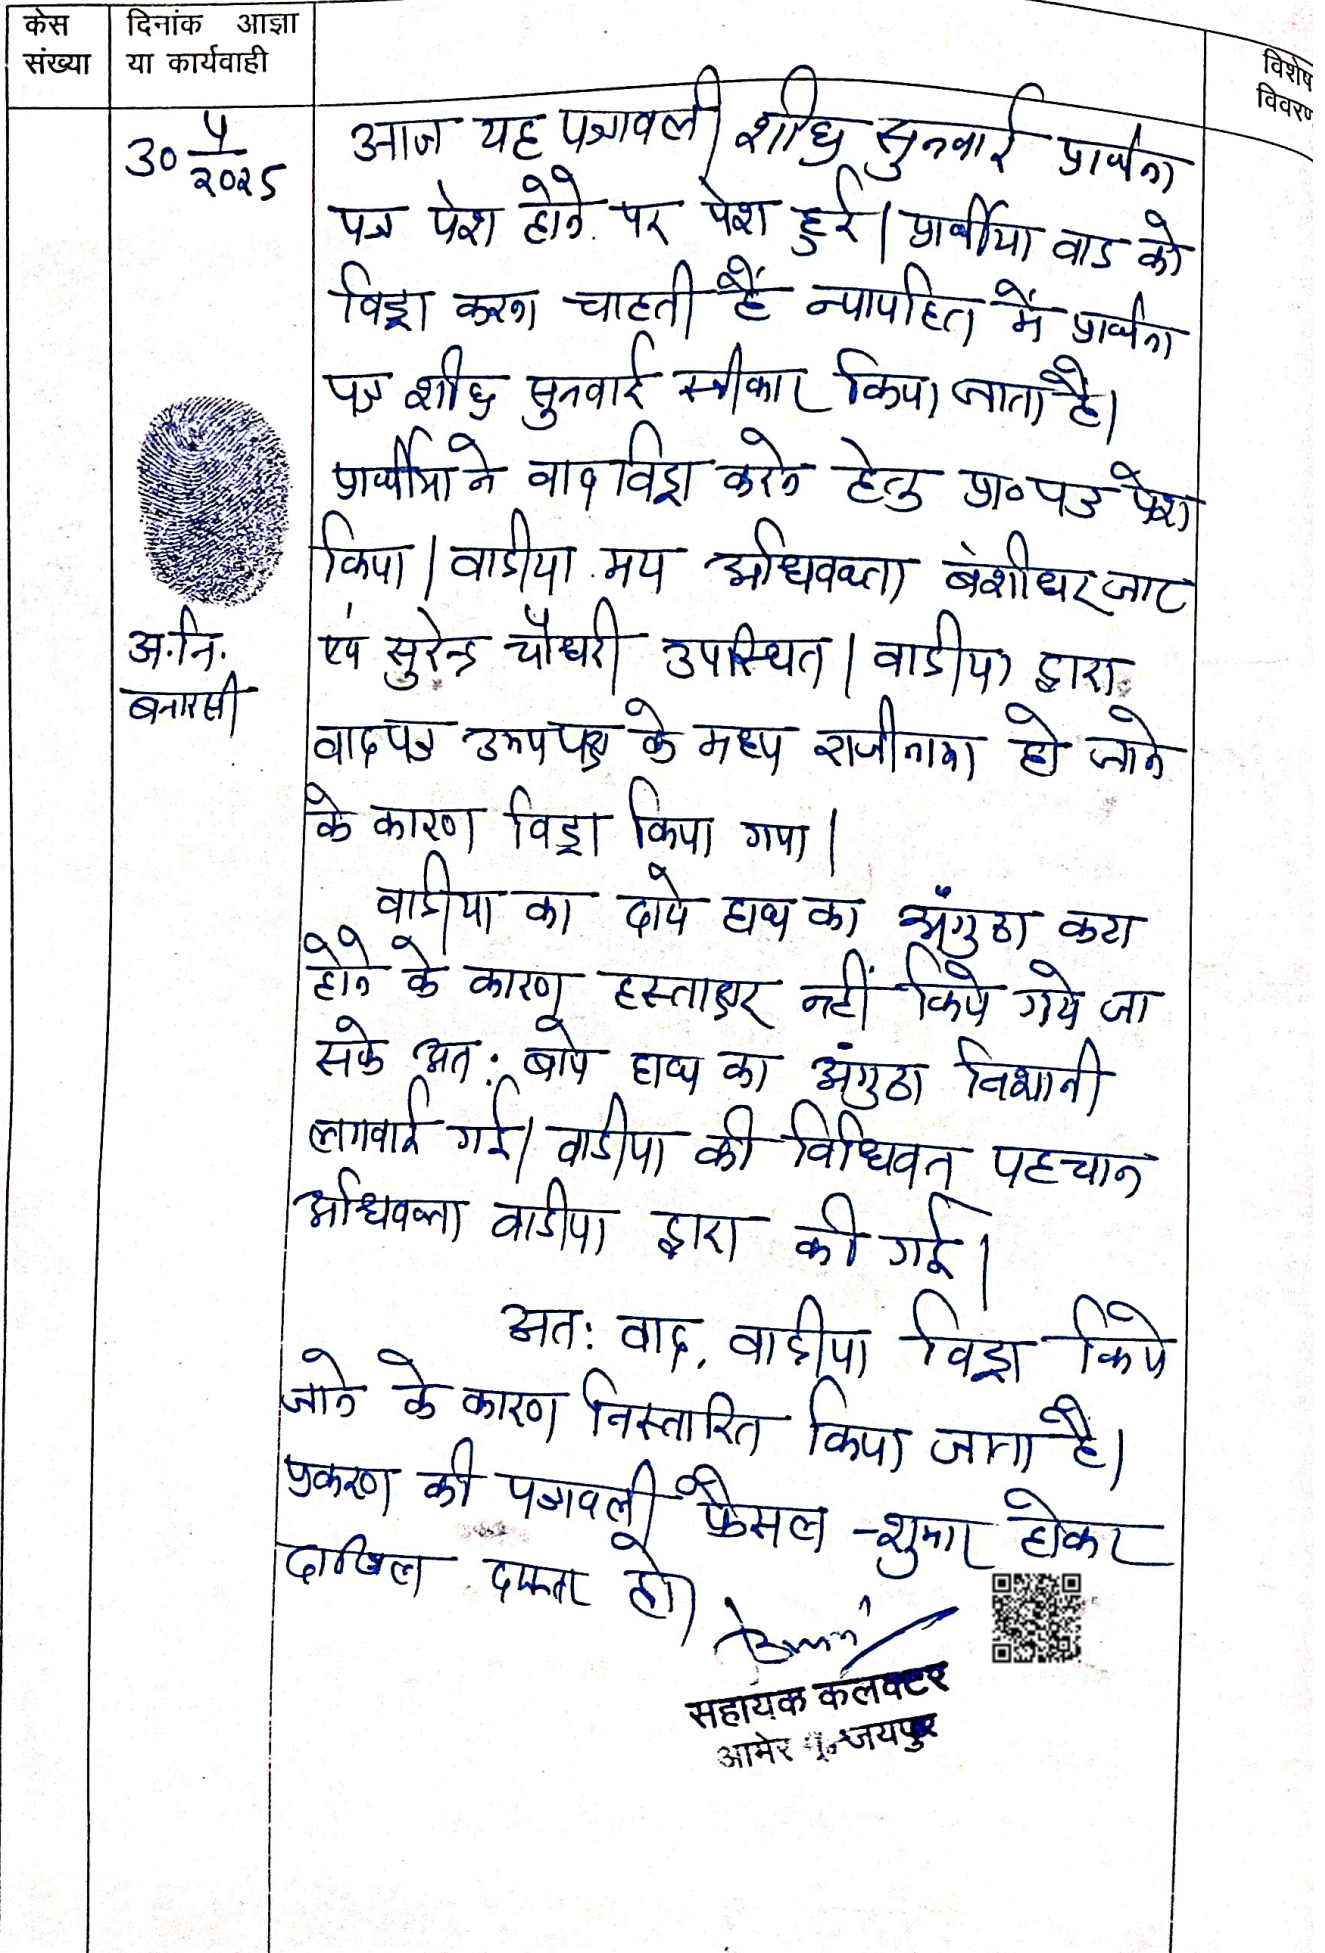 केस संख्या
दिनांक आज्ञा या कार्यवाही
विशेष विवरण
30 5/2025
आज यह पत्रावली शीघ्र सुनवाई प्रार्थना
पत्र पेश होने पर पेश हुई। प्रार्थीया वाद को
विड्रा करना चाहती हैं न्यायहित में प्रार्थना
पत्र शीघ्र सुनवाई स्वीकार किया जाता है।
प्रार्थीया ने वाद विड्रा करने हेतु प्रा० पत्र पेश
किया। वादीया मय अधिवक्ता बंशीधर जाट
एवं सुरेन्द्र चौधरी उपस्थित। वादीया द्वारा
वादपत्र उभयपक्ष के मध्य राजीनामा हो जाने
के कारण विड्रा किया गया।
वादीया का दाये हाथ का अंगुठा कटा
होने के कारण हस्ताक्षर नहीं किये गये जा
सके अत: बाये हाथ का अंगुठा निशानी
लगवाई गई। वादीया की विधिवत पहचान
अधिवक्ता वादीया द्वारा की गई।
अत: वाद, वादीया विड्रा किये
जाने के कारण निस्तारित किया जाता है।
प्रकरण की पत्रावली फैसल शुमार होकर
दाखिल दफ्तर हो।
अ.नि.
बनारसी
सहायक कलक्टर
आमेर मु. जयपुर